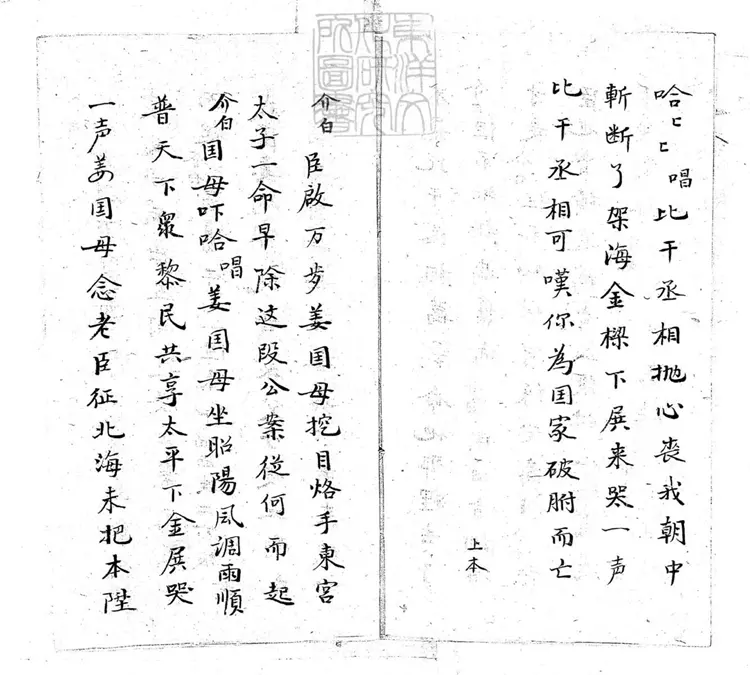 哈匕匕唱比干丞相抛心丧我朝中
斬断了架海金樑下展来哭一声
比干丞相可嘆你為囯家破腑而亡
上本
介白臣啟万步姜囯母挖目烙手東宮
太子一命早除这段公案從何而起
介白囯母吓哈唱姜囯母坐昭陽風調雨順
普天下眾黎民共享太平下金展哭
一声姜囯母念老臣征北海未把本陛
東洋文
化研究
所圖書